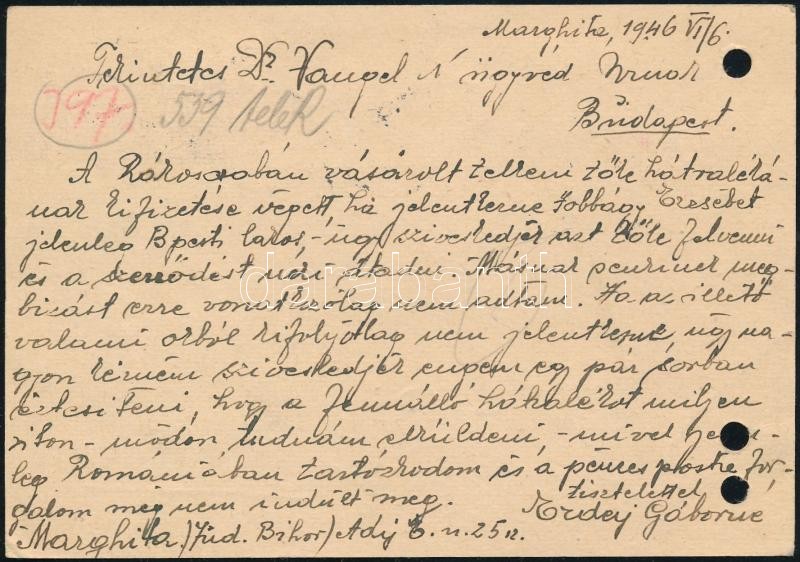 Marghita, 1946 VI/6.
Tekintetes Dr. Vangel N ügyvéd Urnak
Budapest.
397.
539 telek
A Rákoscsabán vásárolt telkem tőle hátraléká-
nak kifizetése végett, ha jelentkezne Jobbágy Erzsébet
jelenleg Bpesti lakos, - úgy sziveskedjék azt tőle felvenni
és a szerződést néki átadni. Másnak senkinek meg-
bizást erre vonatkozólag nem adtam. Ha az illető
valami okból kifolyólag nem jelentkezne, úgy na-
gyon kérném sziveskedjék engem egy pár sorban
értesiteni, hogy a fennálló hátralékot milyen
úton - módon tudnám elküldeni, - mivel jelen-
leg Romániában tartózkodom és a pénzes posta for-
galom még nem indult meg.
tisztelettel
Erdey Gáborné
Marghita. / Jud. Bihor / Adij
darabanth.com